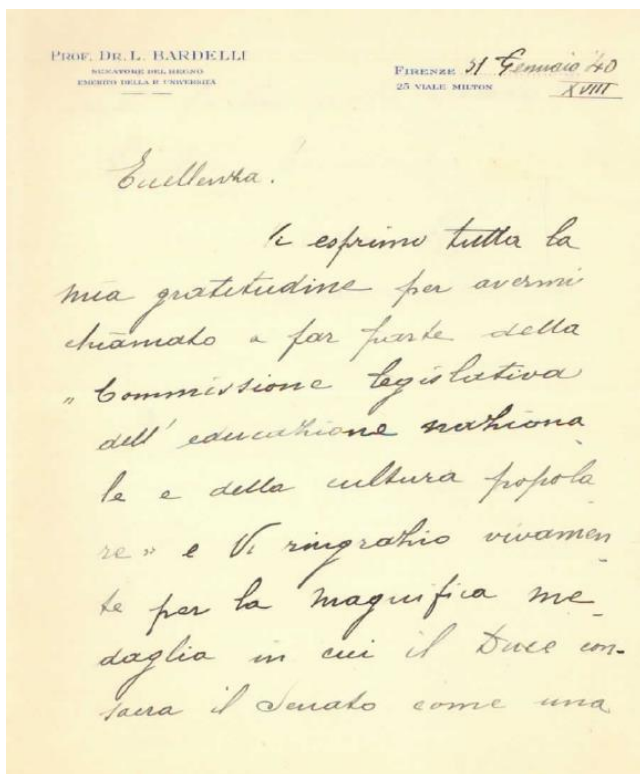 PROF. DR. L. BARDELLI
SENATORE DEL REGNO
EMERITO DELLA R. UNIVERSITÀ
FIRENZE 31 Gennaio '40
25 VIALE MILTON XVIII
Eccellenza.
Vi esprimo tutta la
mia gratitudine per avermi
chiamato a far parte della
"Commissione legislativa
dell'educazione naziona
le e della cultura popola
re" e Vi ringrazio vivamen
te per la magnifica me-
daglia in cui il Duce con-
sacra il Senato come una